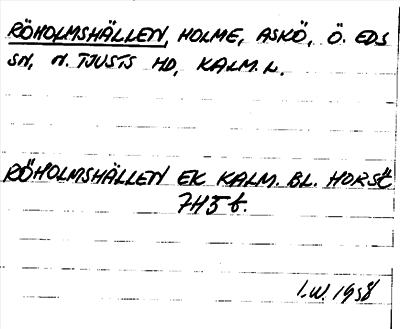 RÖHOLMSHÄLLEN, HOLME, ASKÖ, Ö. EDS
SN, N. TJUSTS HD, KALM. L.
RÖHOLMSHÄLLEN EK KALM. BL. HORSÖ
7H5 b.
I.W. 1958